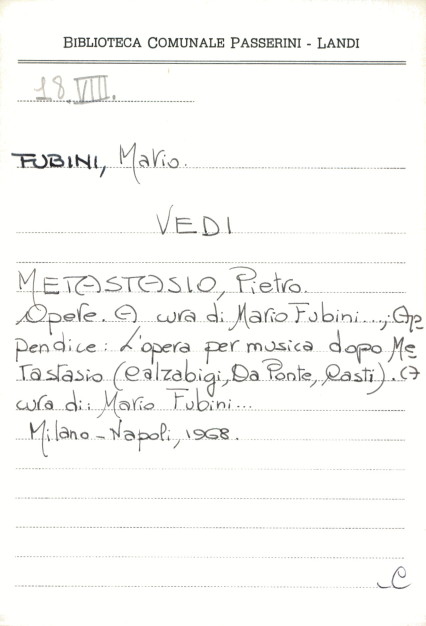 BIBLIOTECA COMUNALE PASSERINI - LANDI
18.VIII.
FUBINI, Mario.
VEDI
METASTASIO, Pietro.
Opere. A cura di Mario Fubini...; Ap
pendice: L'opera per musica dopo Me
tastasio (Calzabigi, Da Ponte, Casti). A
cura di: Mario Fubini...
Milano - Napoli, 1968.
C